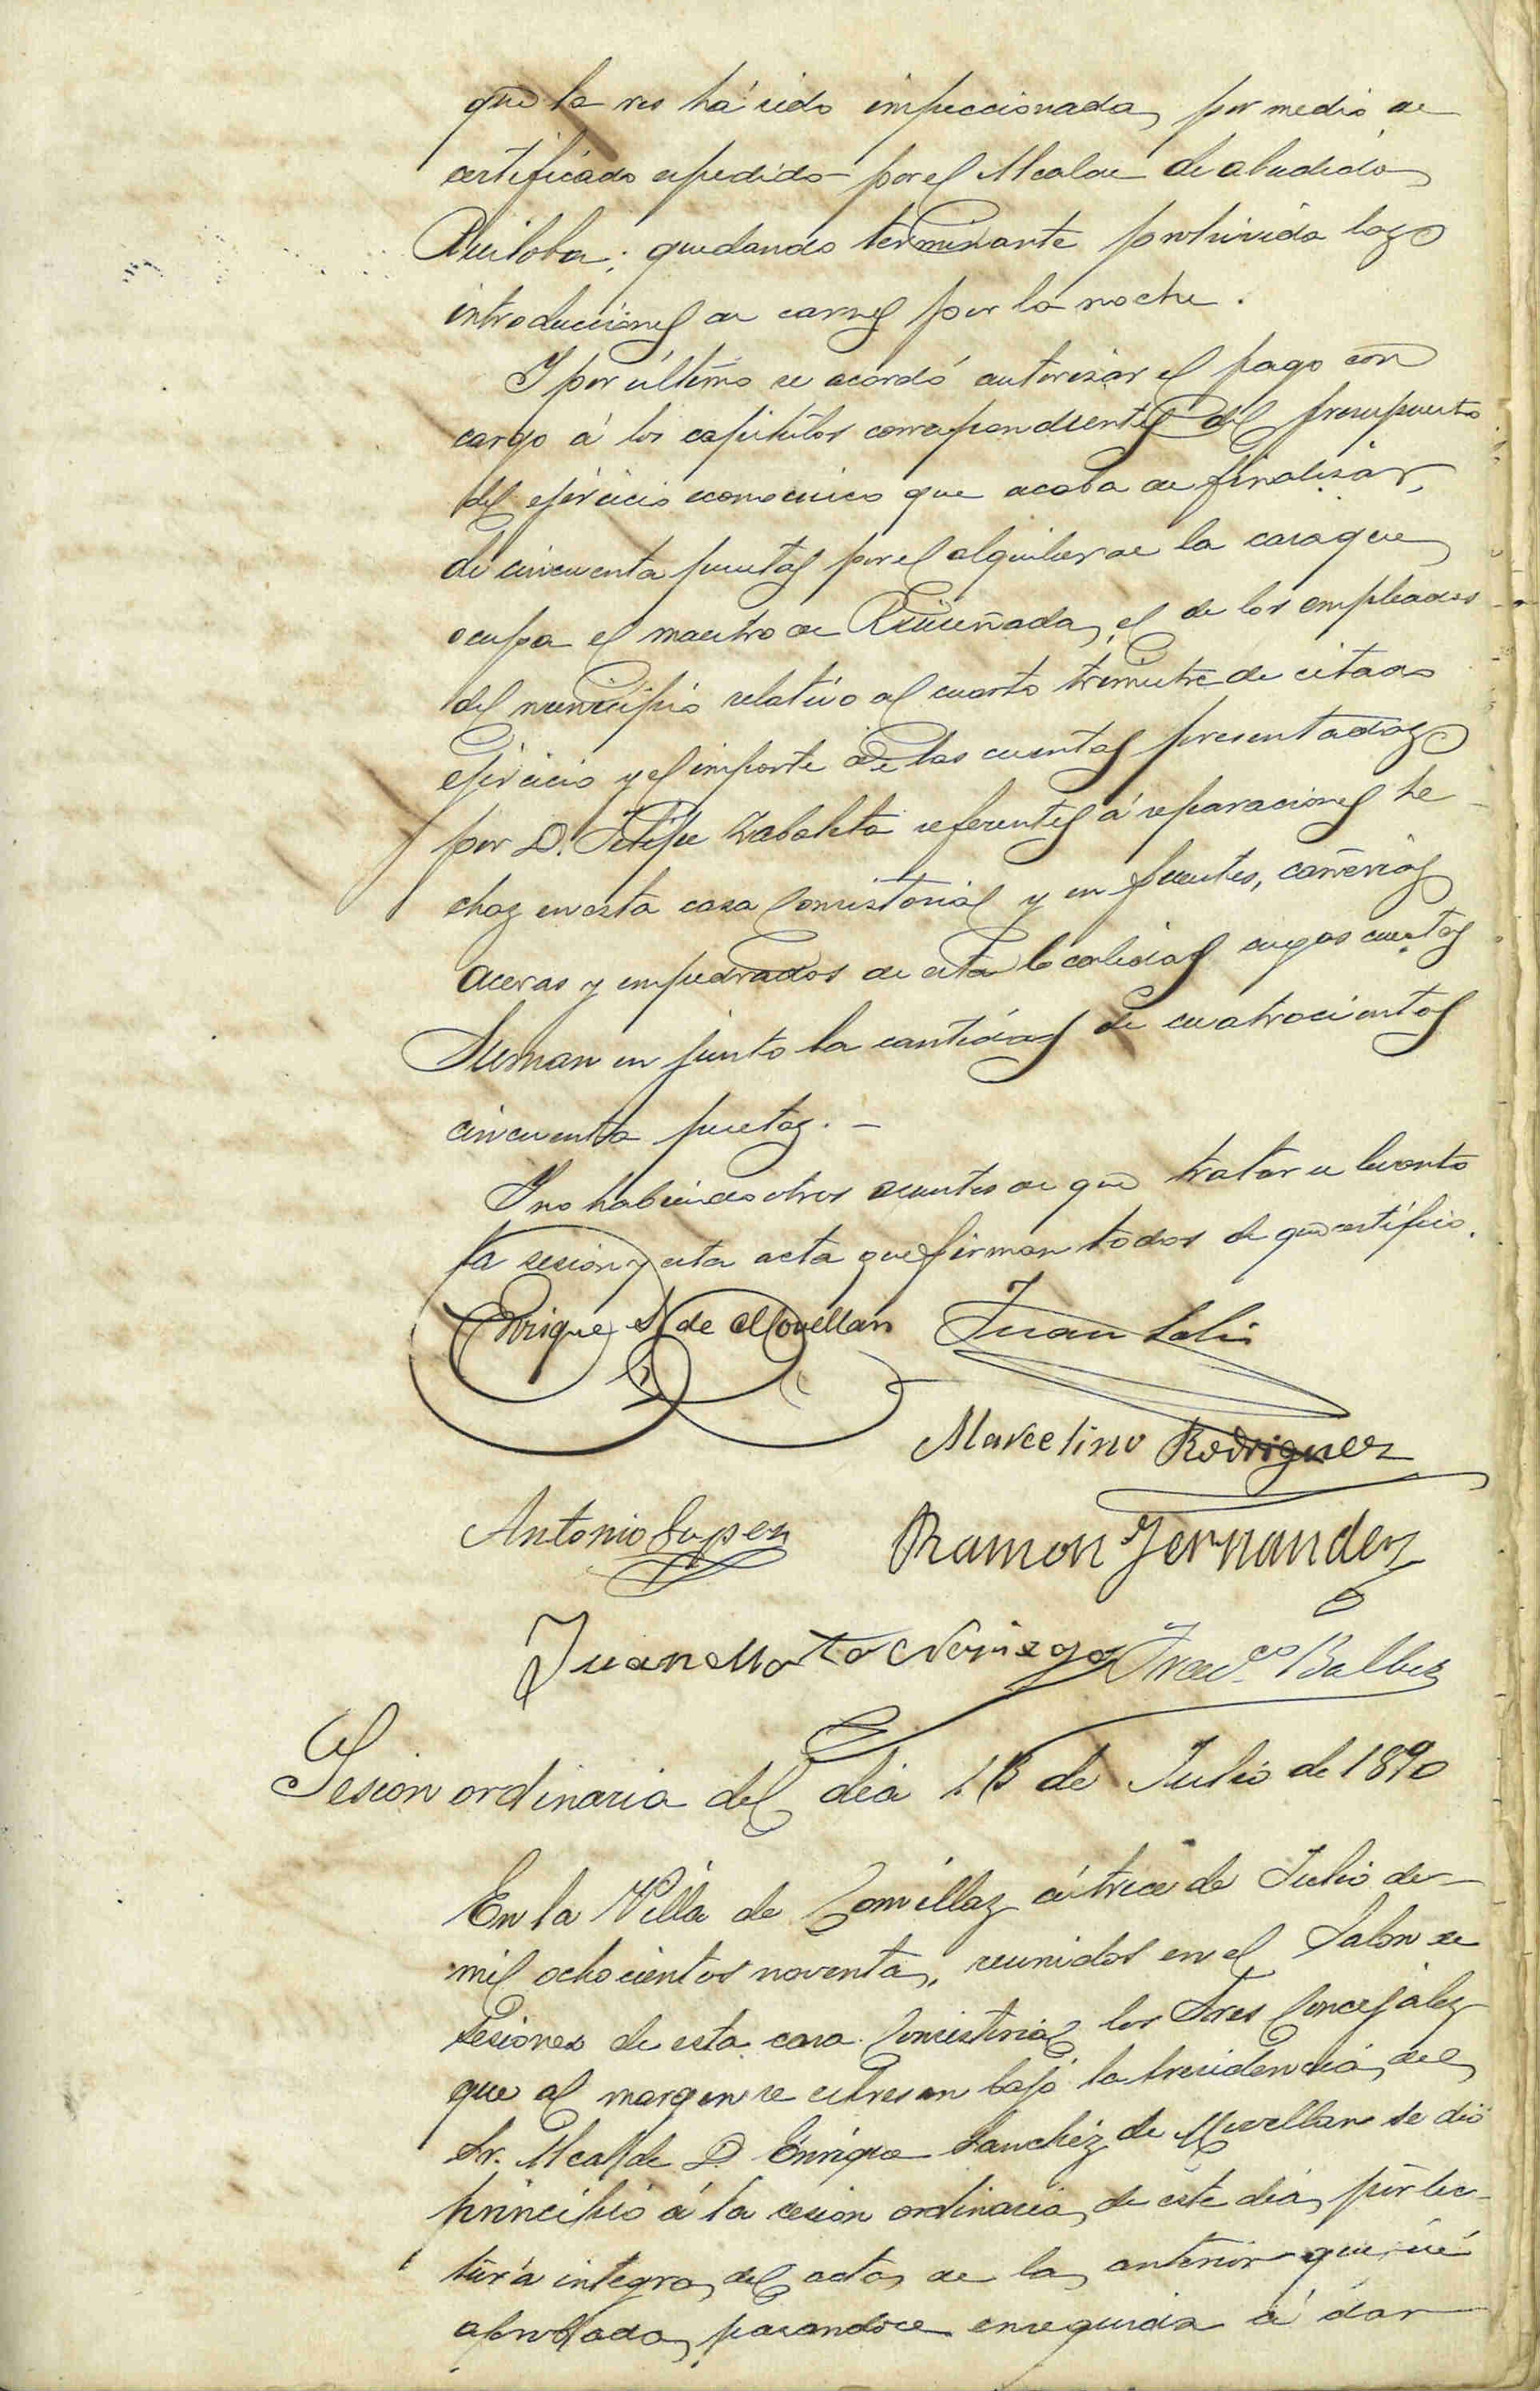 que la res há sido impeccionada, por medio de
certificado espedido por el Alcalde de aludido
Ruiloba; quedando terminante prohivida laz
introducciones de carnes por la noche.
Y por último se acordó autorizar el pago con
cargo á los capitulos correspondientes del presupuesto
del ejercicio economico que acaba de finalizar,
de cincuenta pesetas por el alquiler de la casa que
ocupa el maestro de Rui​señada, el de los empleados
del municipio relativo al cuarto trimestre de citado
ejercicio y el importe de las cuentas presentadaz
por D. Felipe Zabaleta referentes á reparaciones he-
chaz en esta casa Consistorial y en fuentes, cañerias
aceras y empedrados de esta localidad cuyas cuentas
suman en junto la cantidad de cuatrocientas
cincuenta pesetaz. -
Y no habiendo otros asuntos de que tratar se levanto
la sesion y esta acta que firman todos de que certifico.
Enrique S. de Movellán Juan Solis
Marcelino Rodriguez
Antonio Lopez Ramon Fernandez
Juan Mata Noriega Franco Balbas
Sesion ordinaria del dia 13 de Julio de 1890
En la Villa de Comillaz á trece de Julio de
mil ochocientos noventa, reunidos en el Salon de
sesiones de esta casa Consistorial los Sres Concejalez
que al margen se expresan bajo la presidencia del
Sr. Alcalde D. Enrique Sanchez de Movellan se dió
principio á la sesion ordinaria de este dia, por lec-
tura integra del acta de la anterior que fué
aprobada, pasandoce enseguida á dar